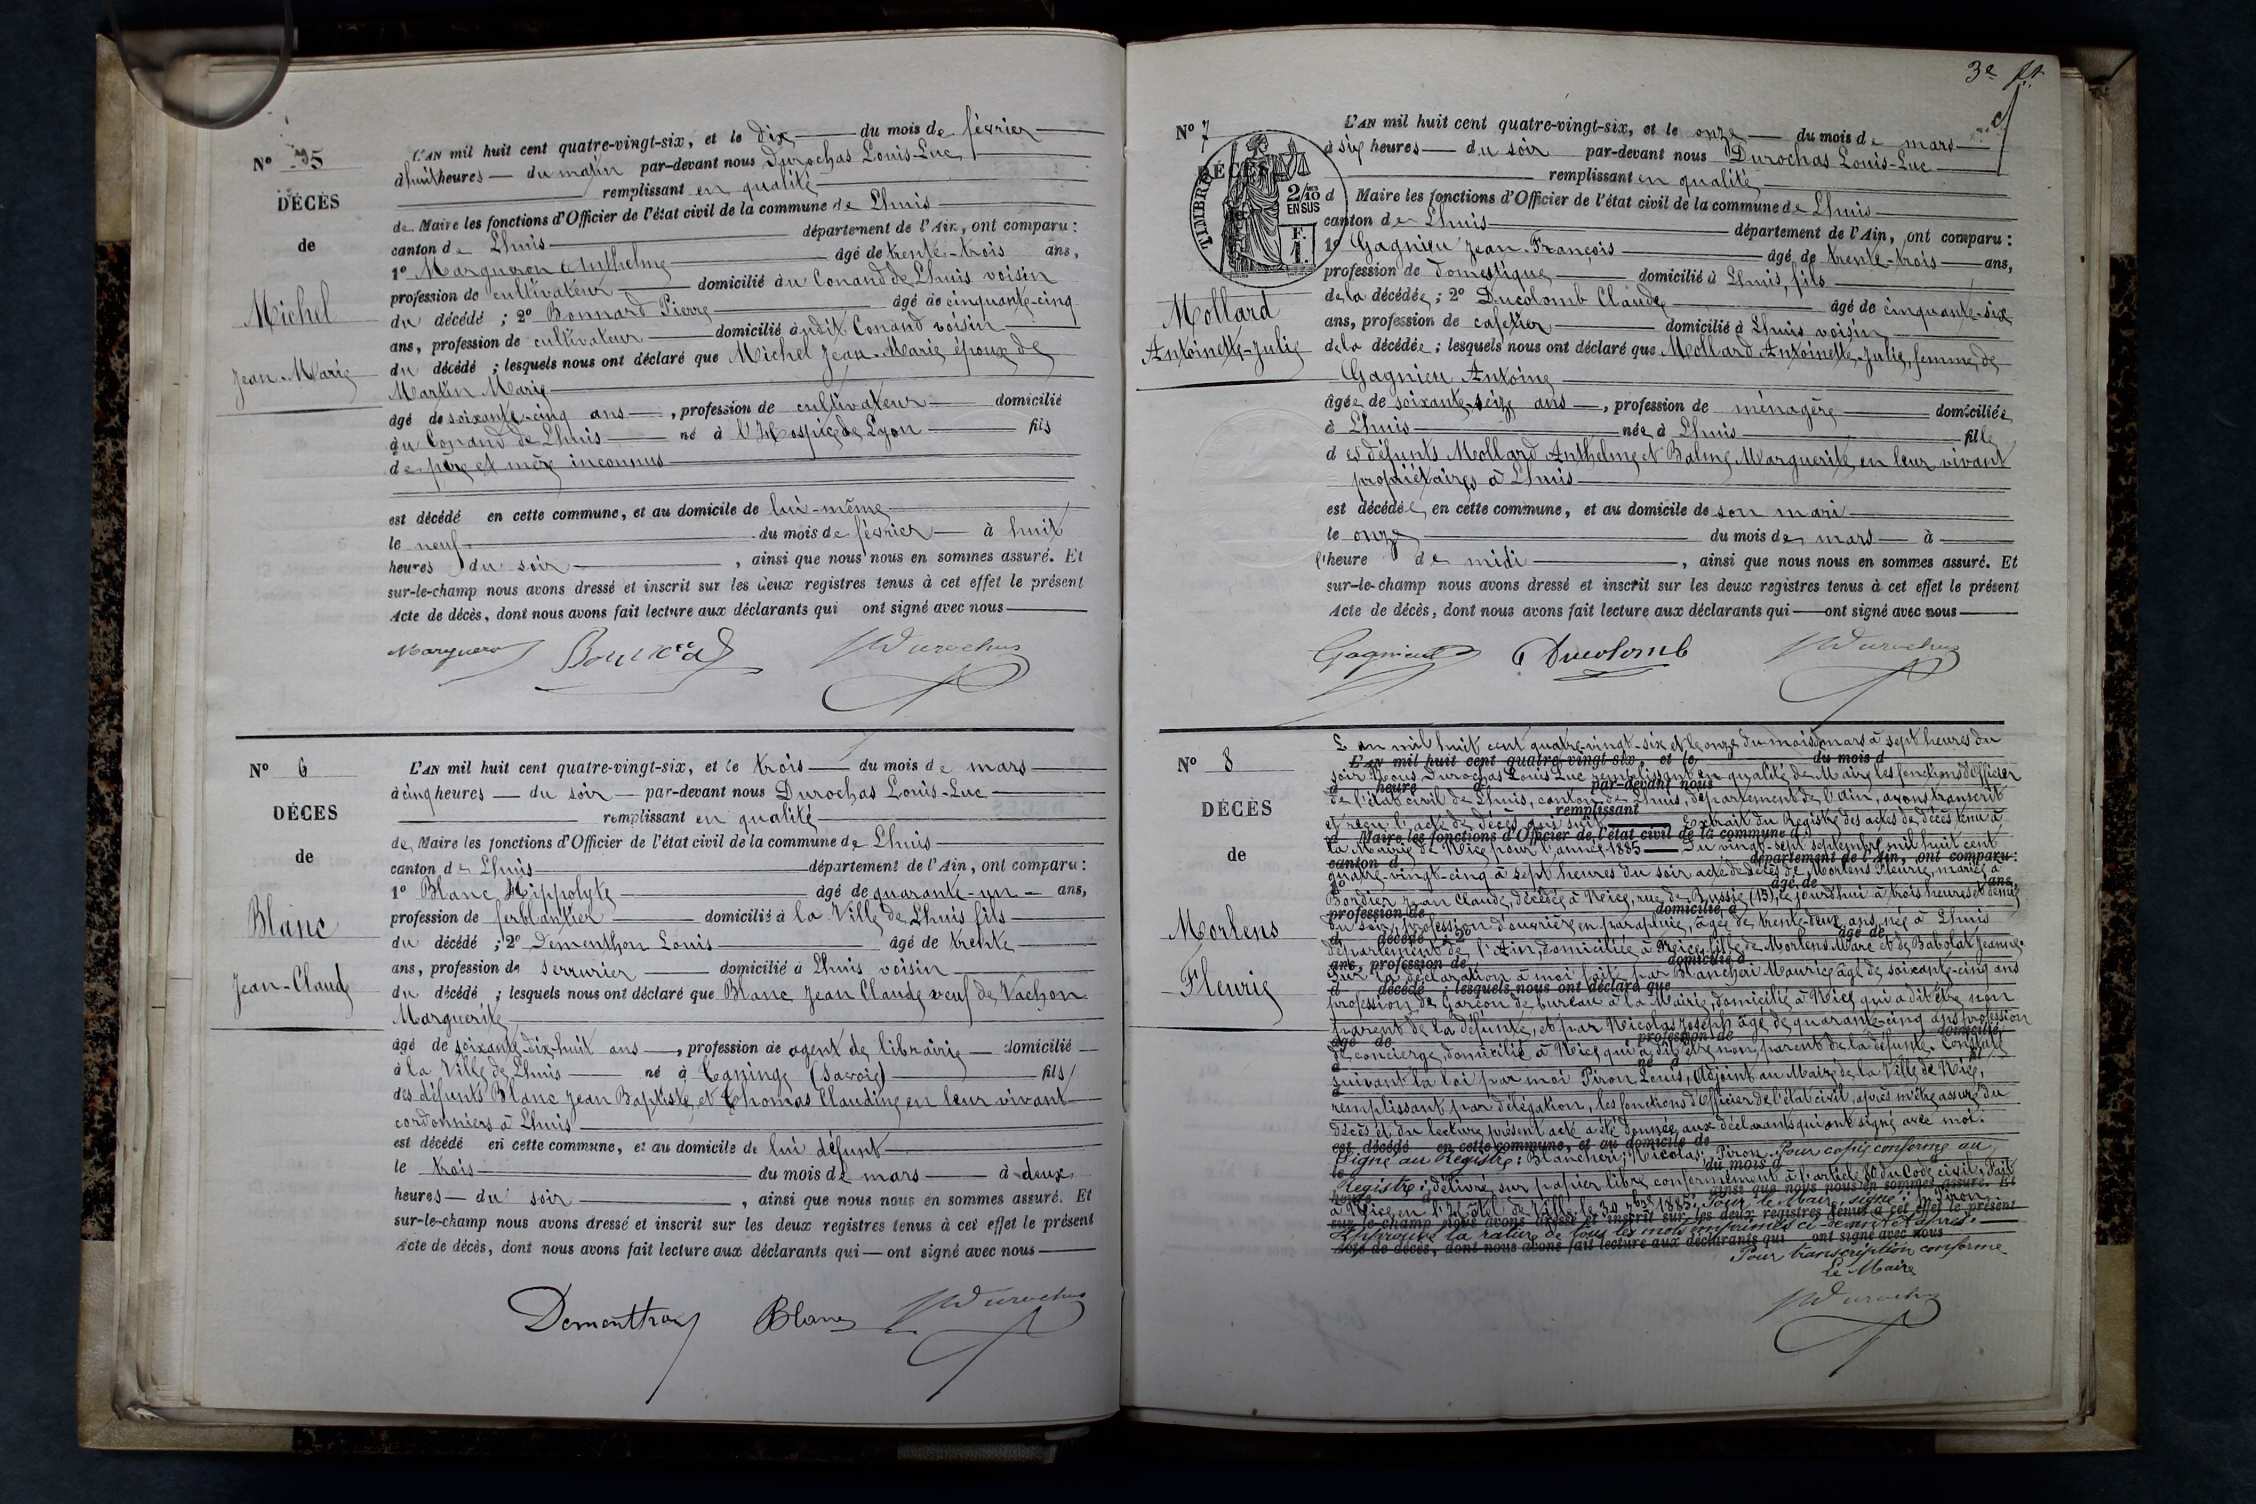 N° 5
DÉCÈS
de
Michel
Jean-Marie
L'AN mil huit cent quatre-vingt-six, et le dix du mois de février
à huit heures du matin par-devant nous Durochas Louis-Luc
remplissant en qualité
de Maire les fonctions d'Officier de l'état civil de la commune de Lhuis
canton de Lhuis département de l'Ain, ont comparu :
1° Margueron Anthelme âgé de trente-trois ans,
profession de cultivateur domicilié au Conand de Lhuis voisin
du décédé ; 2° Bonnard Pierre âgé de cinquante-cinq
ans, profession de cultivateur domicilié audit Conand voisin
du décédé ; lesquels nous ont déclaré que Michel Jean-Marie époux de
Martin Marie
âgé de soixante-cinq ans, profession de cultivateur domicilié
au Conand de Lhuis né à l'Hospice de Lyon fils
de père et mère inconnus
est décédé en cette commune, et au domicile de lui-même
le neuf du mois de février à huit
heures du soir, ainsi que nous nous en sommes assuré. Et
sur-le-champ nous avons dressé et inscrit sur les deux registres tenus à cet effet le présent
Acte de décès, dont nous avons fait lecture aux déclarants qui ont signé avec nous
Durochas
N° 6
DÉCES
de
Blanc
Jean-Claude
L'AN mil huit cent quatre-vingt-six, et le trois du mois de mars
à cinq heures du soir par-devant nous Durochas Louis-Luc
remplissant en qualité
de Maire les fonctions d'Officier de l'état civil de la commune de Lhuis
canton de Lhuis département de l'Ain, ont comparu :
1° Blanc Hippolyte âgé de quarante-un ans,
profession de ferblantier domicilié à la Ville de Lhuis fils
du décédé ; 2° Dementhon Louis âgé de trente
ans, profession de serrurier domicilié à Lhuis voisin
du décédé ; lesquels nous ont déclaré que Blanc Jean Claude veuf de Vachon
Marguerite
âgé de soixante-dix-huit ans, profession de agent de librairie domicilié
à la Ville de Lhuis né à Taninge (Savoie) fils
des défunts Blanc Jean Baptiste et Thomas Claudine en leur vivant
cordonniers à Lhuis
est décédé en cette commune, et au domicile de lui défunt
le trois du mois de mars à deux
heures du soir, ainsi que nous nous en sommes assuré. Et
sur-le-champ nous avons dressé et inscrit sur les deux registres tenus à cet effet le présent
Acte de décès, dont nous avons fait lecture aux déclarants qui ont signé avec nous
Dementhon Blanc Durochas
3e
N° 7
DÉCÈS
TIMBRE
2/10 EN SUS
F. 1.
Mollard
Antoinette-Julie
L'AN mil huit cent quatre-vingt-six, et le onze du mois de mars
à six heures du soir par-devant nous Durochas Louis-Luc
remplissant en qualité
d Maire les fonctions d'Officier de l'état civil de la commune de Lhuis
canton de Lhuis département de l'Ain, ont comparu :
1° Gagnieu Jean-François âgé de trente-trois ans,
profession de domestique domicilié à Lhuis, fils
de la décédée ; 2° Ducolomb Claude âgé de cinquante-six
ans, profession de cafetier domicilié à Lhuis voisin
de la décédée ; lesquels nous ont déclaré que Mollard Antoinette-Julie, femme de
Gagnieu Antoine
âgée de soixante-seize ans, profession de ménagère domiciliée
à Lhuis née à Lhuis fille
des défunts Mollard Anthelme et Balme Marguerite en leur vivant
propriétaires à Lhuis
est décédée en cette commune, et au domicile de son mari
le onze du mois de mars à
l'heure de midi, ainsi que nous nous en sommes assuré. Et
sur-le-champ nous avons dressé et inscrit sur les deux registres tenus à cet effet le présent
Acte de décès, dont nous avons fait lecture aux déclarants qui ont signé avec nous
Gagnieu Ducolomb Durochas
N° 8
DÉCÈS
de
Morlens
Fleurie
L'an mil huit cent quatre-vingt-six et le onze du mois de mars à sept heures du
soir Nous Durochas Louis Luc remplissant en qualité de Maire les fonctions d'officier
de l'état civil de Lhuis, canton de Lhuis, département de l'Ain, avons transcrit
et reçu l'acte de décès qui suit Extrait du Registre des actes de décès tenu à
la Mairie de Nice pour l'année 1885 Du vingt-sept septembre mil huit cent
quatre-vingt-cinq à sept heures du soir acte de décès de Morlens Fleurie, mariée à
Bordier Jean Claude, décédée à Nice, rue de Russie (15), ce jourd'hui à trois heures et demie
du soir, profession d'ouvrière en parapluie, âgée de trente-deux ans, née à Lhuis
département de l'Ain, domiciliée à Nice, fille de Morlens Marc et de Babolat Jeanne.
Sur la déclaration à moi faite par Blancheri Maurice âgé de soixante-cinq ans
profession de Garçon de bureau à la Mairie, domicilié à Nice qui a dit être non
parent de la défunte, et par Nicolas Joseph âgé de quarante-cinq ans profession
de concierge, domicilié à Nice qui a dit être non parent de la défunte. Constaté
suivant la loi par moi Piron Louis, Adjoint au Maire de la Ville de Nice,
remplissant par délégation, les fonctions d'Officier de l'état civil, après m'être assuré du
décès et du lecture présent acte a été donnée aux déclarants qui ont signé avec moi.
Signé au Registre : Blancheri ; Nicolas ; Piron. Pour copie conforme au
Registre ; délivré sur papier libre conformément à l'article 80 du Code civil. Fait
à Nice en l'Hôtel de Ville le 30 7bre 1885. Pour le Maire, signé : Piron
Approuvé la rature de tous les mots imprimés ci-dessus et après.
Pour transcription conforme
Le Maire
Durochas